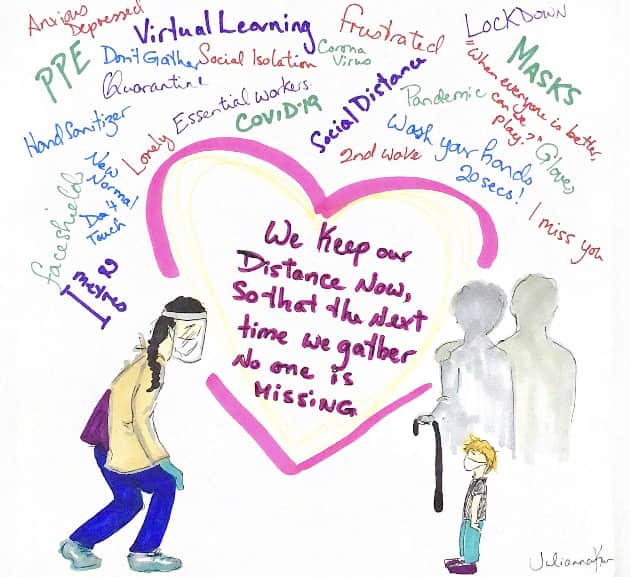 Anxious
Depressed
Virtual Learning
Frustrated
LOCKDOWN
PPE
Don't Gather
Social Isolation
Corona
Virus
MASKS
"When everyone is better,
can we
play?"
Quarantine
Essential Workers
COVID-19
Social Distance
Pandemic
Hand Sanitizer
Lonely
2nd wave
Wash your hands
20 secs!
Gloves
I miss you
faceshields
New
Normal
Don't
Touch
2
metres
We Keep our
Distance Now,
So that the Next
time we gather
No one is
MISSING